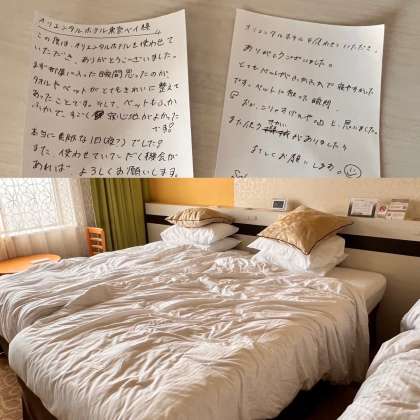 オリエンタルホテル東京ベイ様
この度は、オリエンタルホテルを使わせて
いただき、ありがとうございました。
まず部屋に入った瞬間思ったのが、
タオルやベットがとてもきれいに整えて
あったことです。そして、ベットもふか
ふかで、すごく寝心地がよかった
です。
本当に素敵な1日(夜?)でした!
また、使わせていただく機会が
あれば、よろしくお願いします。
オリエンタルホテルを使わせていただき、
ありがとうございました。
とてもベットがふかふかで寝やすかった
です。ベットに座った瞬間
「お、こりゃすげぇや」と思いました。
また使うきかいがありましたら
よろしくお願いします。